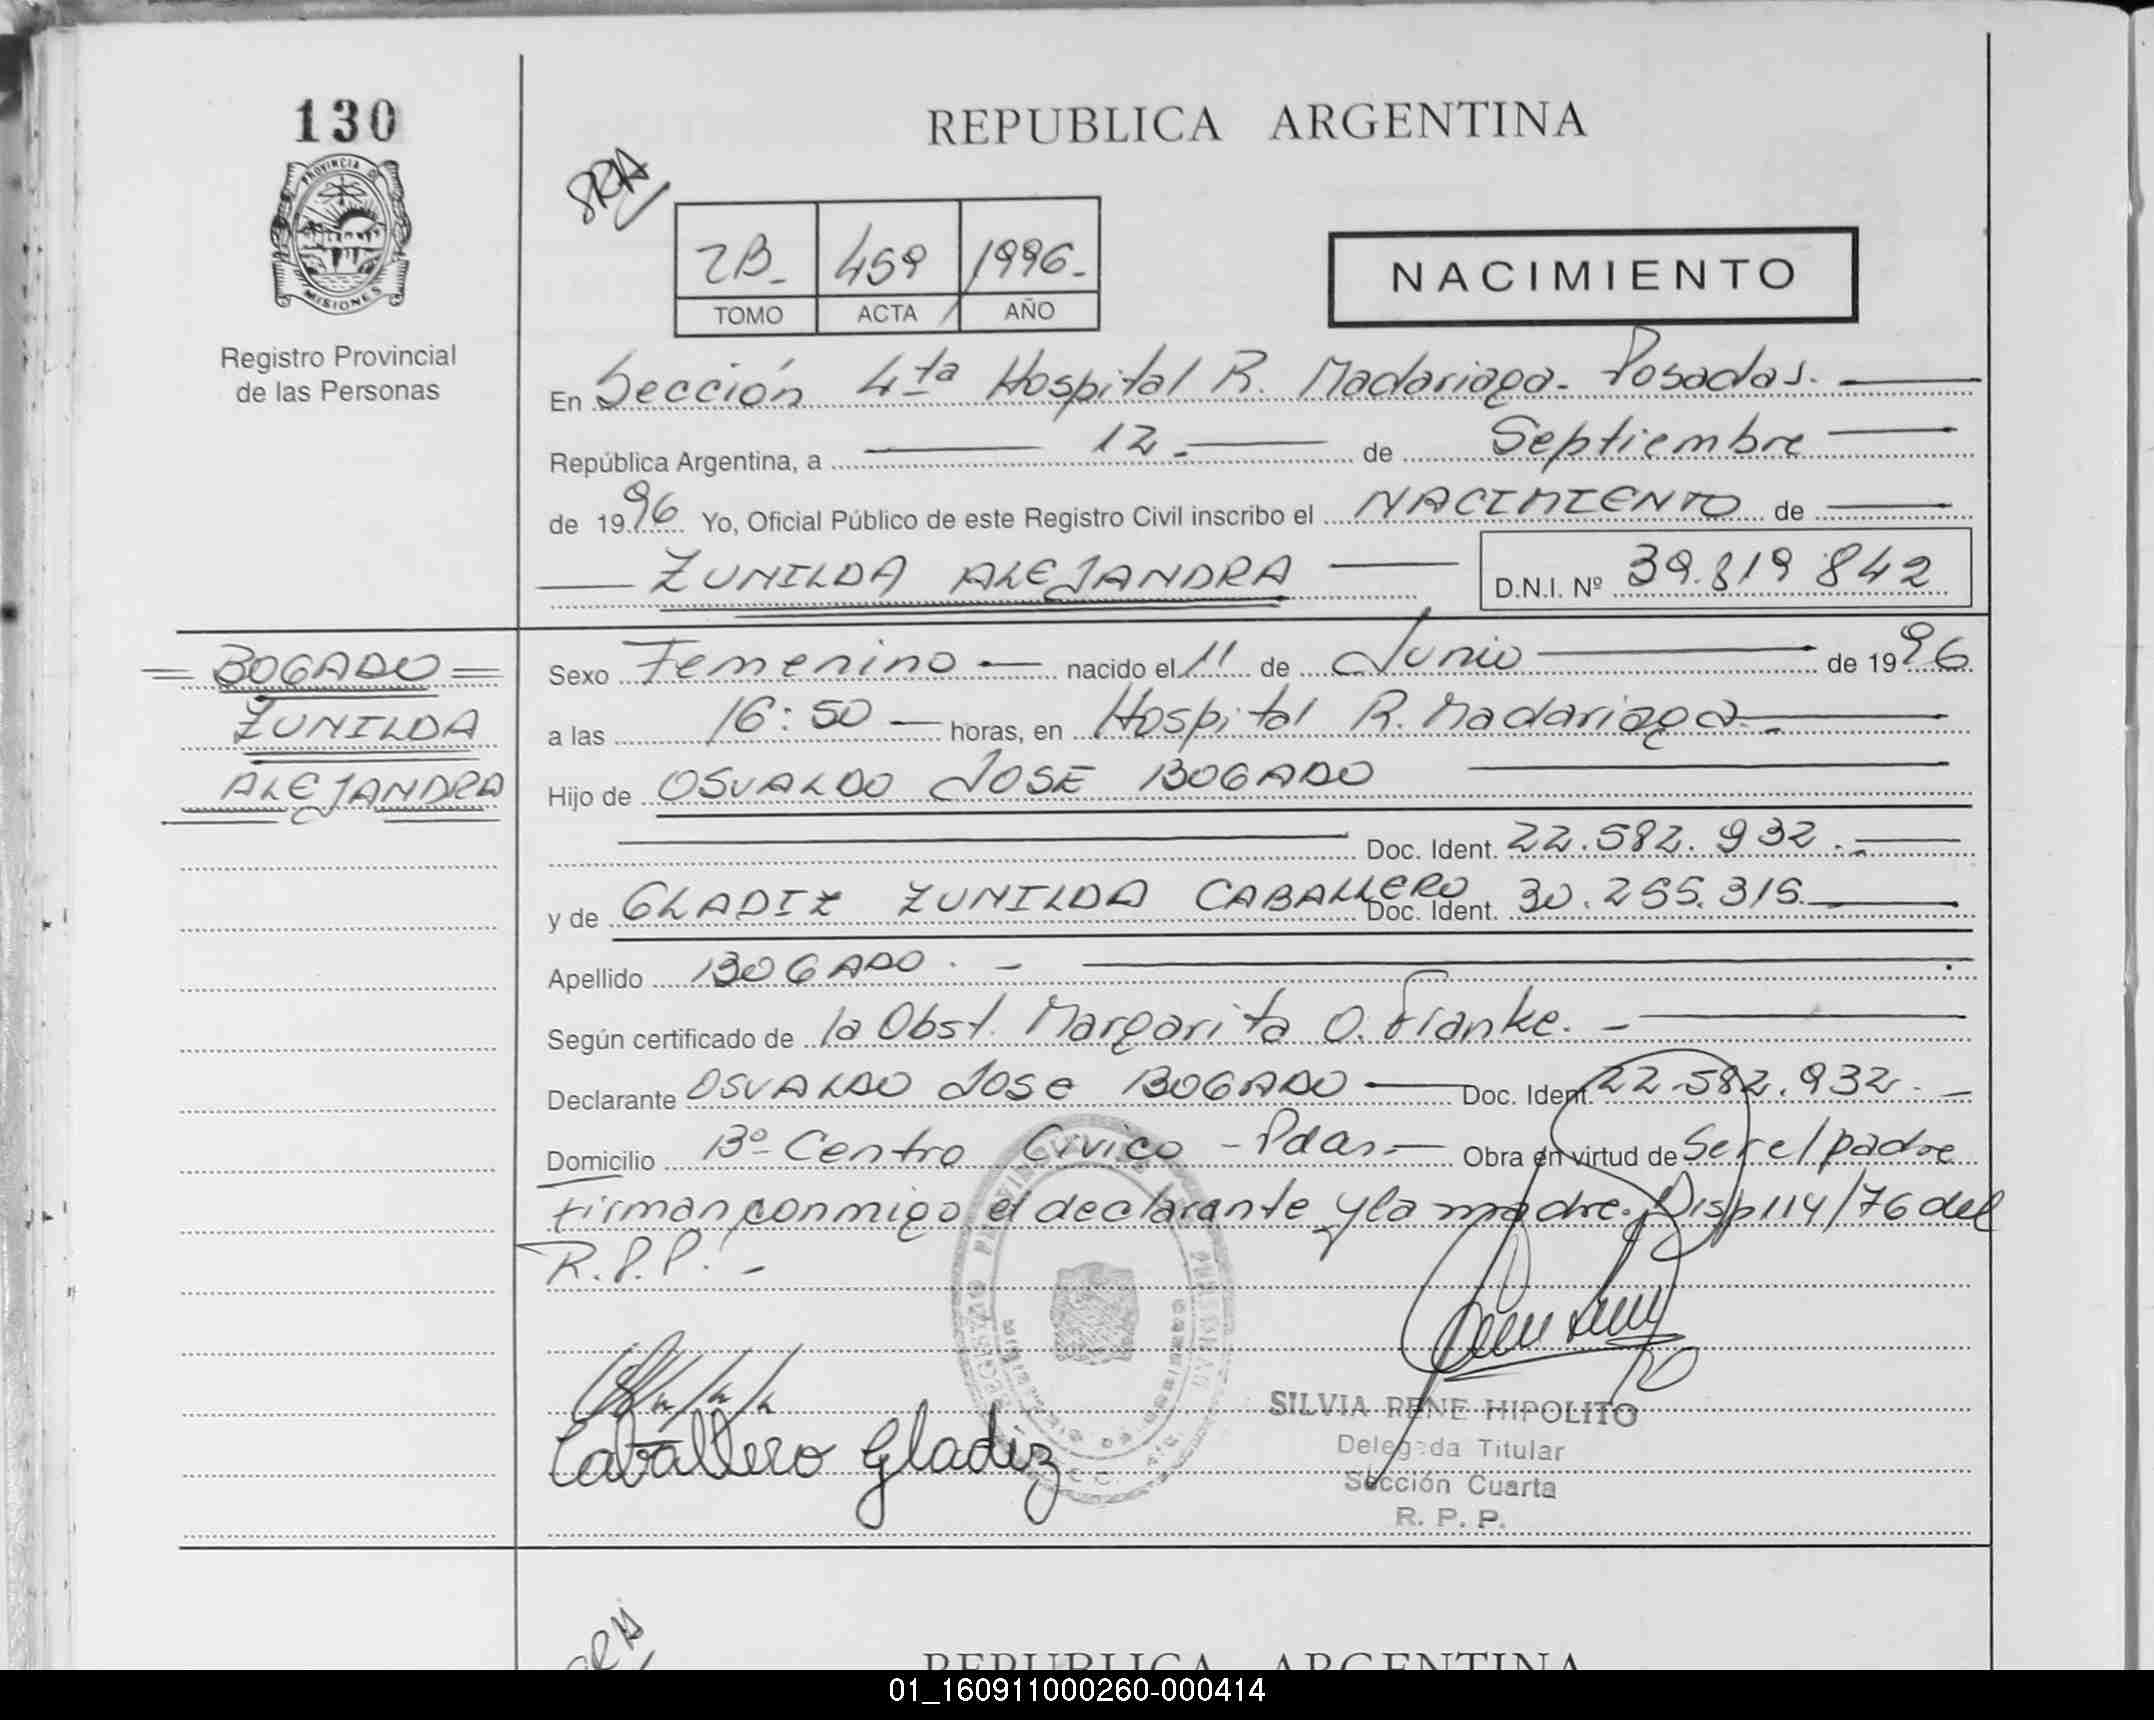 130
PROVINCIA DE
MISIONES
Registro Provincial
de las Personas
REPUBLICA ARGENTINA
2B- 459 1996-
TOMO ACTA AÑO
NACIMIENTO
En Sección 4ta Hospital R. Madariaga- Posadas.
República Argentina, a 12- de Septiembre
de 1996 Yo, Oficial Público de este Registro Civil inscribo el NACIMIENTO de
ZUNILDA ALEJANDRA D.N.I. Nº 39.819.842
=BOGADO=
ZUNILDA
ALEJANDRA
Sexo Femenino nacido el 11 de Junio de 1996
a las 16:50 horas, en Hospital R. Madariaga-
Hijo de OSVALDO JOSE BOGADO
Doc. Ident. 22.582.932.-
y de GLADIZ ZUNILDA CABALLERO Doc. Ident. 30.255.315.
Apellido BOGADO.-
Según certificado de la Obst. Margarita O. Franke.-
Declarante OSVALDO JOSE BOGADO Doc. Ident. 22.582.932.-
Domicilio Bº Centro Civico - Pdas.- Obra en virtud de Ser el padre
firman conmigo el declarante y la madre. Disp 114/76 del
R.P.P.-
Caballero Gladiz
SILVIA RENE HIPOLITO
Delegada Titular
Sección Cuarta
R. P. P.
REPUBLICA ARGENTINA
01_160911000260-000414